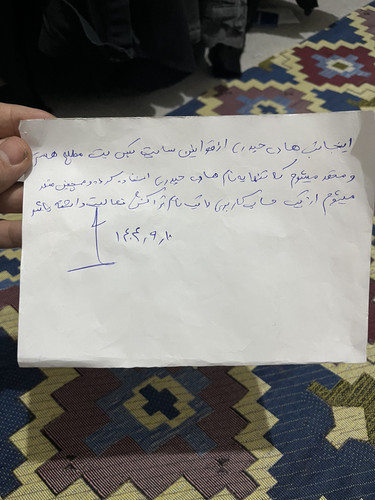 اینجانب هادی حیدری از قوانین سایت تکس بت مطلع هستم
و متعهد میشوم که تنها به نام هادی حیدری استفاده کرده و همچنین متعهد
میشوم از یک حساب کاربری با یک نام تراکنش فعالیت داشته باشم
۱۴۰۴,۹,۱۰